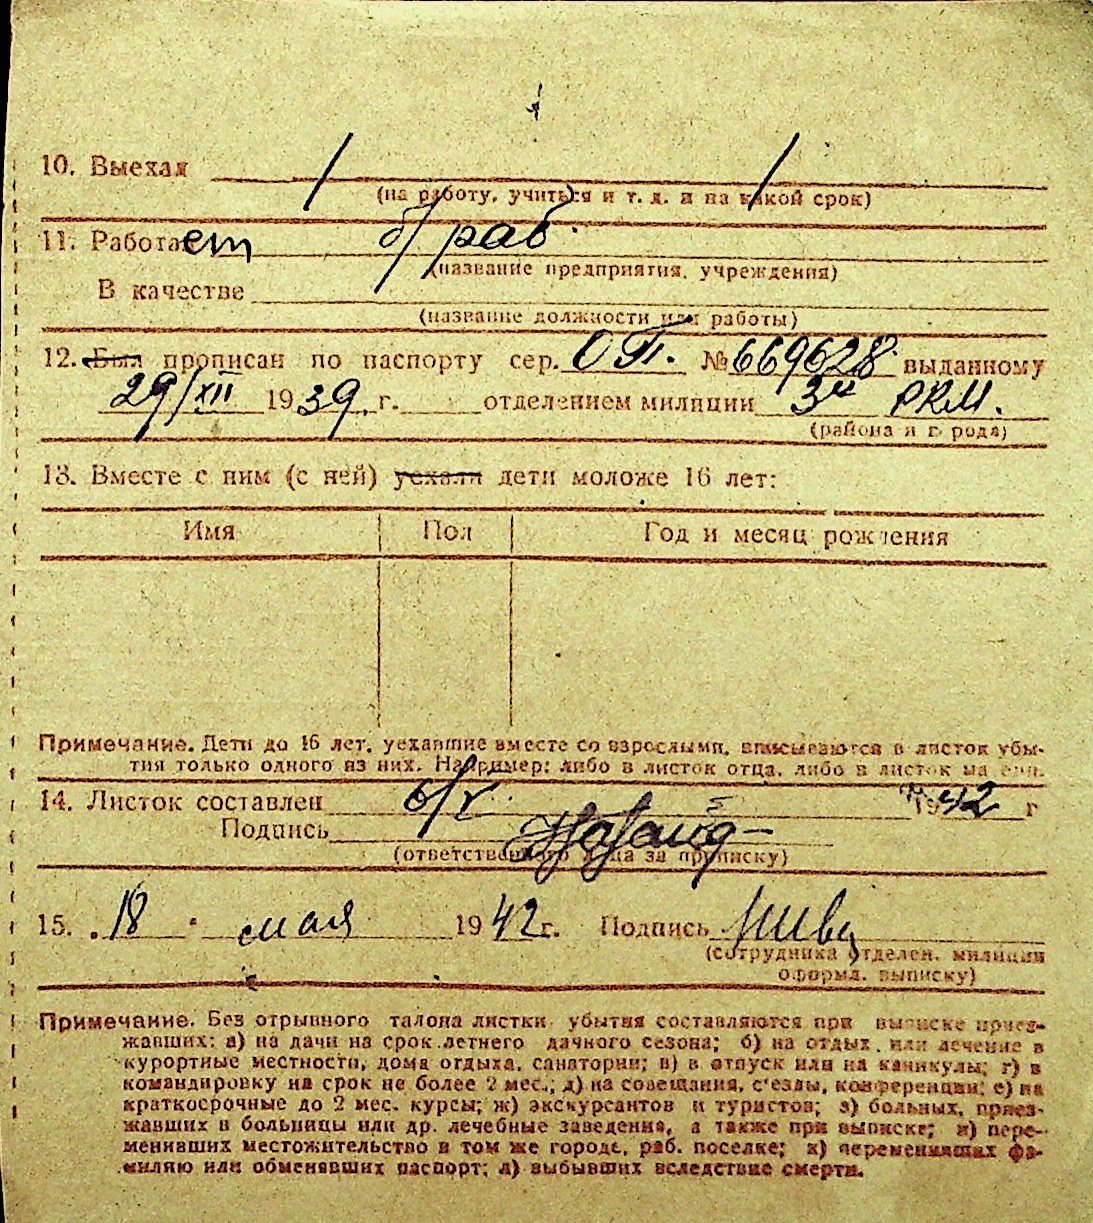 10. Выехал / /
(на работу, учиться и т. д. и на какой срок)
11. Работает б/раб.
(название предприятия, учреждения)
В качестве
(название должности или работы)
12. Был прописан по паспорту сер. ОП. № 669628 выданному
29/XII 1939 г. отделением милиции 3м РКМ.
(района и города)
13. Вместе с ним (с ней) уехали дети моложе 16 лет:
Имя Пол Год и месяц рождения
Примечание. Дети до 16 лет, уехавшие вместе со взрослыми, вписываются в листок убы-
тия только одного из них. Например: либо в листок отца, либо в листок матери.
14. Листок составлен 1942 г
Подпись
(ответственного лица за прописку)
15. „18 " мая 1942 г. Подпись
(сотрудника отделен. милиции
оформл. выписку)
Примечание. Без отрывного талона листки убытия составляются при выписке приез-
жавших: а) на дачи на срок летнего дачного сезона; б) на отдых или лечение в
курортные местности, дома отдыха, санатории; в) в отпуск или на каникулы; г) в
командировку на срок не более 2 мес.; д) на совещания, с'езды, конференции; е) на
краткосрочные до 2 мес. курсы; ж) экскурсантов и туристов; з) больных, приез-
жавших в больницы или др. лечебные заведения, а также при выписке; и) пере-
менивших местожительство в том же городе, раб. поселке; к) переменивших фа-
милию или обменявших паспорт; л) выбывших вследствие смерти.